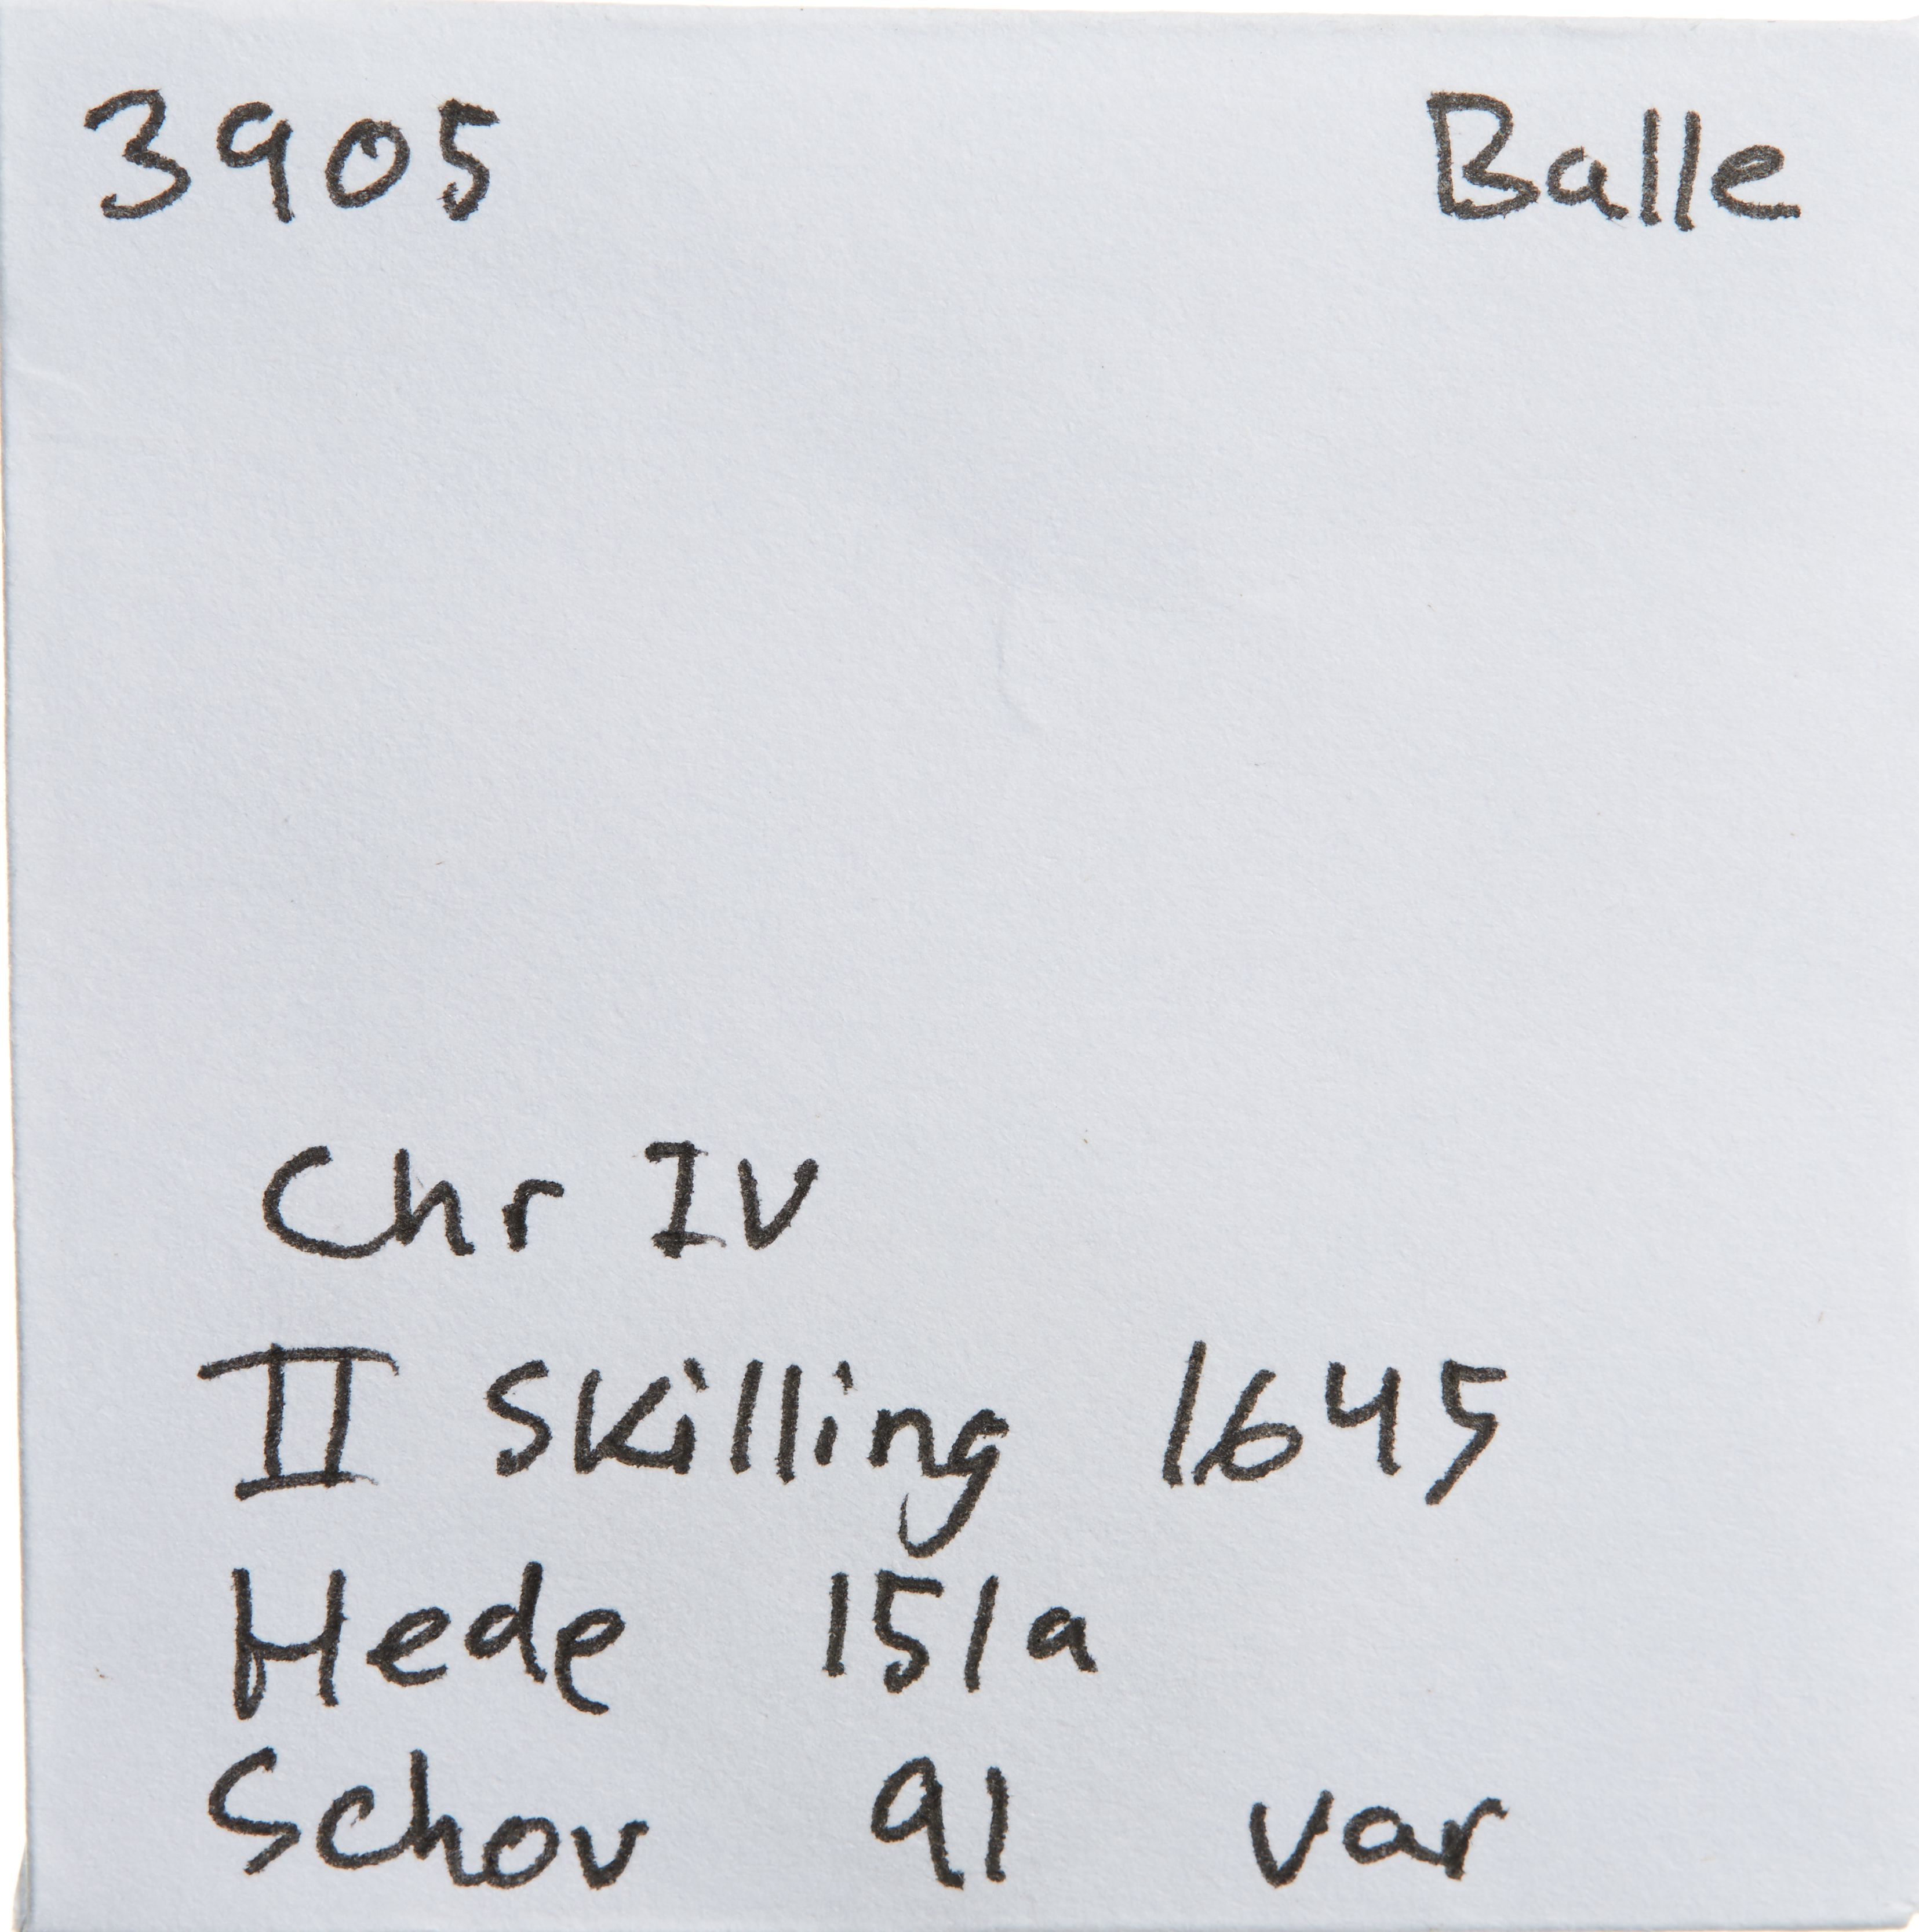 3905 Balle
Chr IV
II Skilling 1645
Hede 151a
Schou 91 var